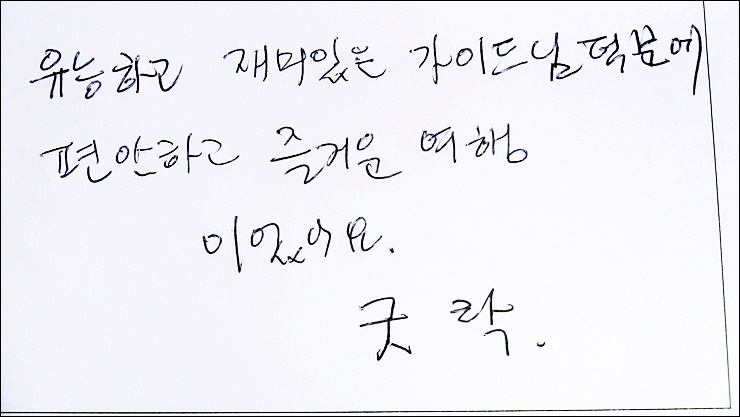 유능하고 재미있은 가이드님 덕분에
편안하고 즐거운 여행
이었어요.
굿 락.